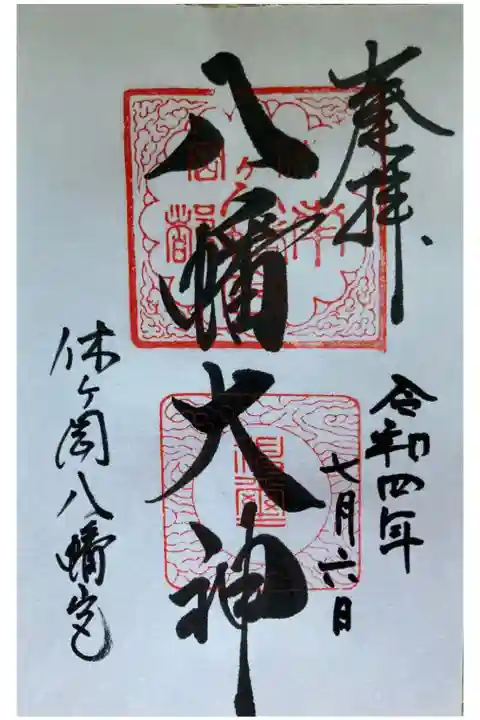 奉拝
令和四年
七月六日
八幡大神
休ヶ岡八幡宮